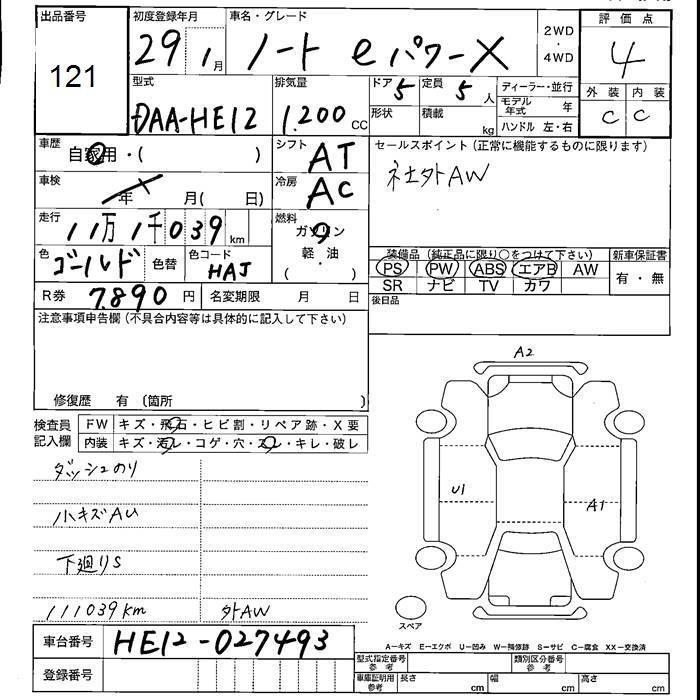 出品番号 初度登録年月 車名・グレード 評価点
121 29 1月 ノート eパワーX 2WD・4WD 4
型式 排気量 ドア 5 定員 5人 ディーラー・並行 外装 内装
DAA-HE12 1.200 CC 形状 積載 kg モデル年式 年 C C
ハンドル 左・右
車歴 自家用・( ) シフト AT セールスポイント (正常に機能するものに限ります)
車検 年 月( 日) 冷房 AC 社外AW
走行 11万1千039km 燃料 ガソリン
軽・油
( )
色 ゴールド 色替 色コード HAJ 装備品 (純正品に限り○をつけて下さい) 新車保証書
PS PW ABS エアB AW 有・無
SR ナビ TV カワ
R券 7.890円 名変期限 月 日 後日品
注意事項申告欄 (不具合内容等は具体的に記入して下さい)
修復歴 有 (箇所 )
検査員記入欄 FW キズ・飛石・ヒビ割・リペア跡・X要
内装 キズ・汚レ・コゲ・穴・スレ・キレ・破レ
ダッシュのり
小キズAU
下廻りS
111039km 外AW
A2
U1 A1
スペア
A－キズ E－エクボ U－凹み W－補修跡 S－サビ C－腐食 XX－交換済
車台番号 HE12-027493
登録番号
型式指定番号 参考 類別区分番号 参考
車庫証明用 参考 長さ cm 幅 cm 高さ cm